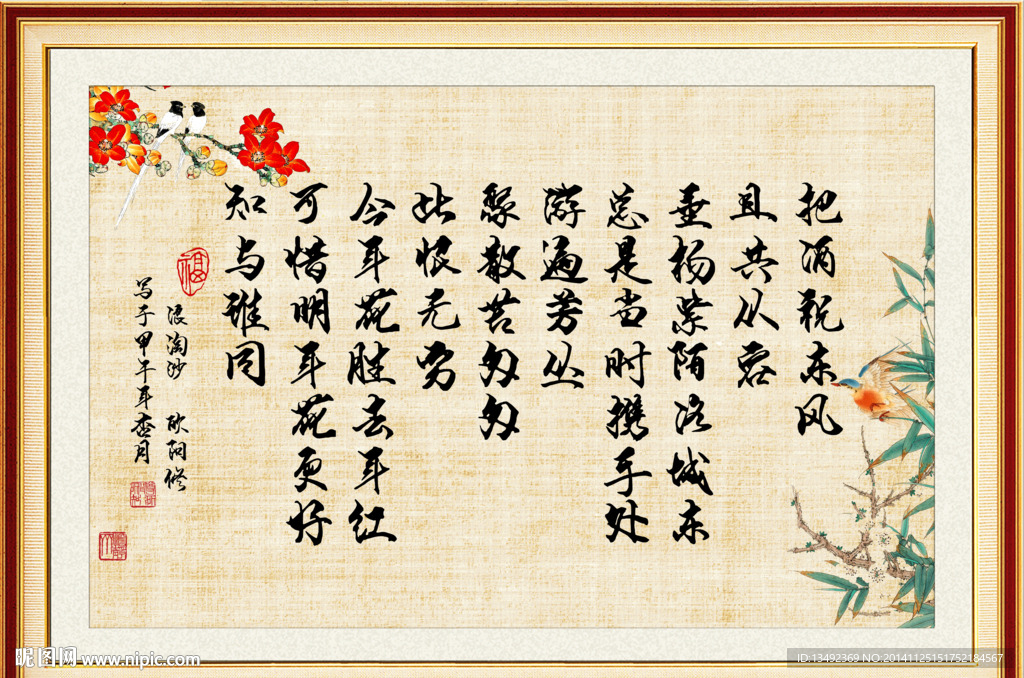 把酒祝东风
且共从容
垂杨紫陌洛城东
总是当时携手处
游遍芳丛
聚散苦匆匆
此恨无穷
今年花胜去年红
可惜明年花更好
知与谁同
福
浪淘沙 欧阳修
写于甲午年杏月
昵图网 www.nipic.com
ID:13492369 NO:20141125151752184567